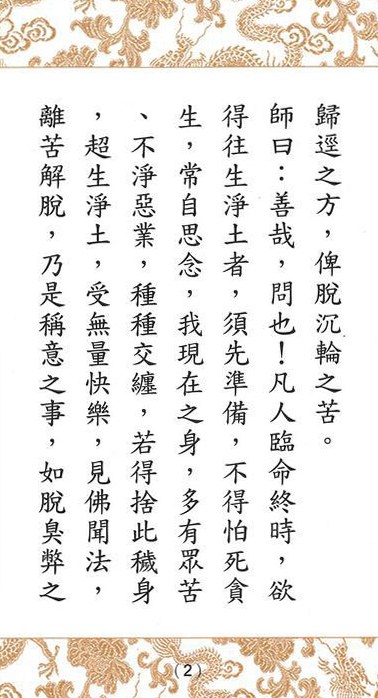 歸逕之方，俾脫沉輪之苦。
師曰：善哉，問也！凡人臨命終時，欲
得往生淨土者，須先準備，不得怕死貪
生，常自思念，我現在之身，多有眾苦
、不淨惡業，種種交纏，若得捨此穢身
，超生淨土，受無量快樂，見佛聞法，
離苦解脫，乃是稱意之事，如脫臭弊之
（2）